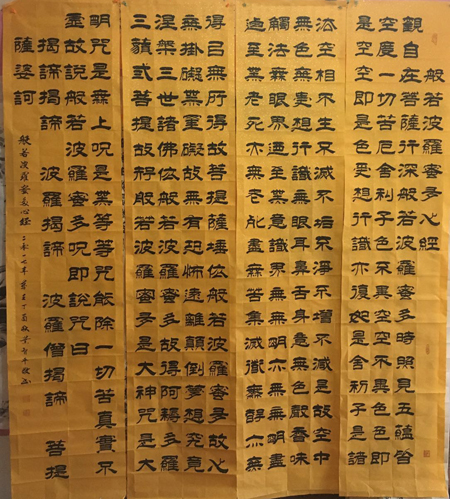 般若波羅蜜多心經
觀自在菩薩行深般若波羅蜜多時照見五蘊皆
空度一切苦厄舍利子色不異空空不異色色即
是空空即是色受想行識亦復如是舍利子是諸
法空相不生不滅不垢不淨不增不減是故空中
無色無受想行識無眼耳鼻舌身意無色聲香味
觸法無眼界迺至無意識界無無明亦無無明盡
迺至無老死亦無老死盡無苦集滅道無智亦無
得以無所得故菩提薩埵依般若波羅蜜多故心
無掛礙無掛礙故無有恐怖遠離顛倒夢想究竟
涅槃三世諸佛依般若波羅蜜多故得阿耨多羅
三藐弎菩提故知般若波羅蜜多是大神咒是大
明咒是無上咒是無等等咒能除一切苦真實不
虛故說般若波羅蜜多咒即說咒曰
揭諦揭諦 波羅揭諦 波羅僧揭諦 菩提
薩婆訶
般若波羅蜜多心經 二零一七年